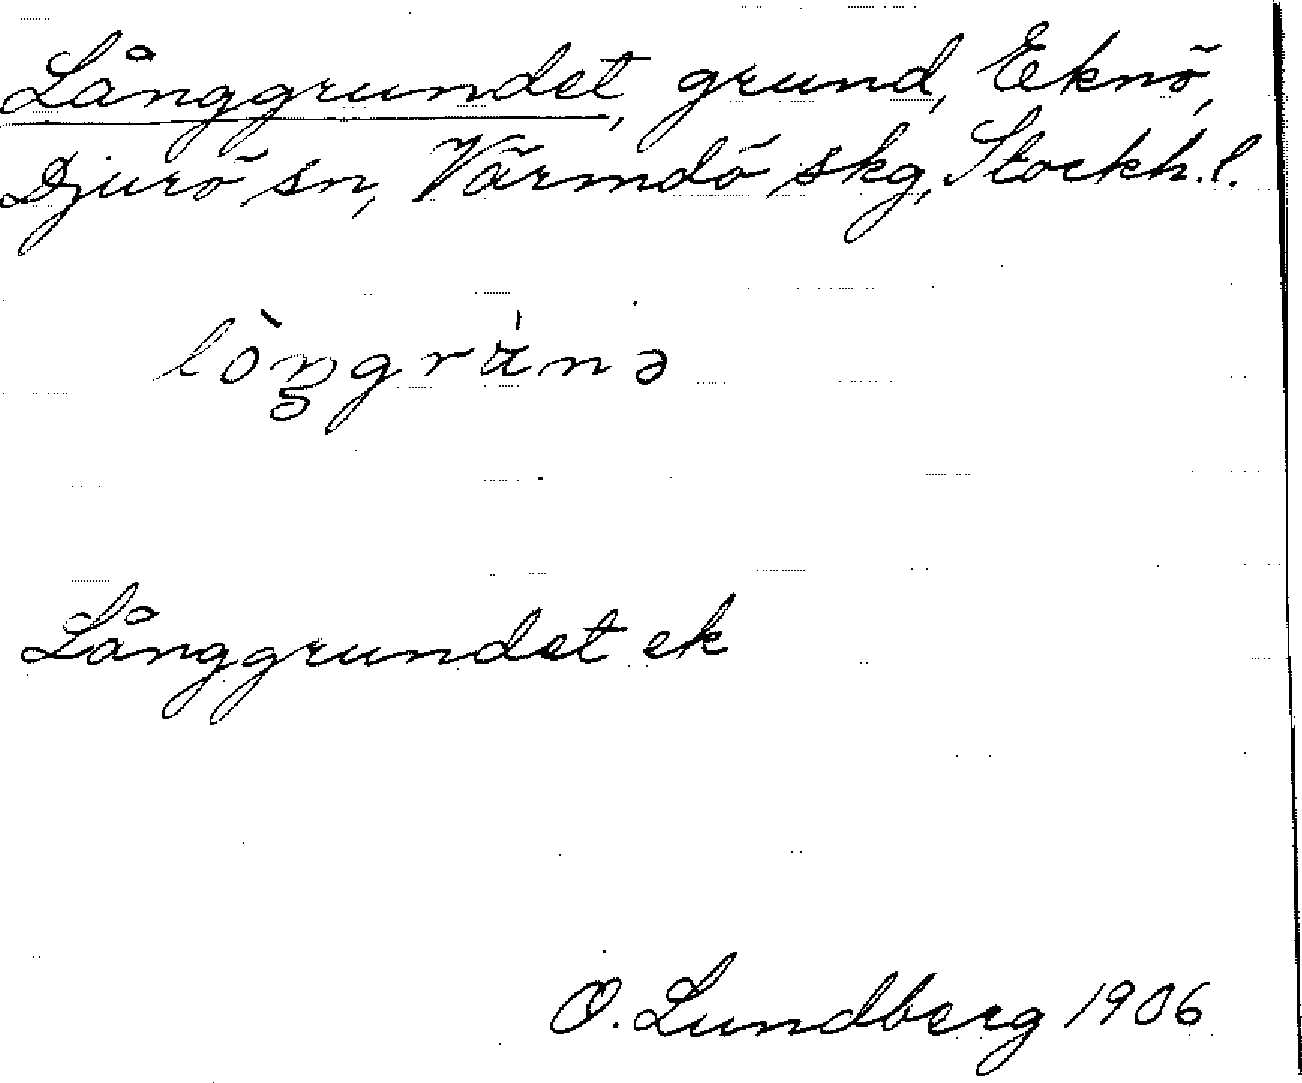 Långgrundet, grund, Eknö,
Djurö sn, Värmdö skg, Stockh. l.
Långgrundet ek
O. Lundberg 1906